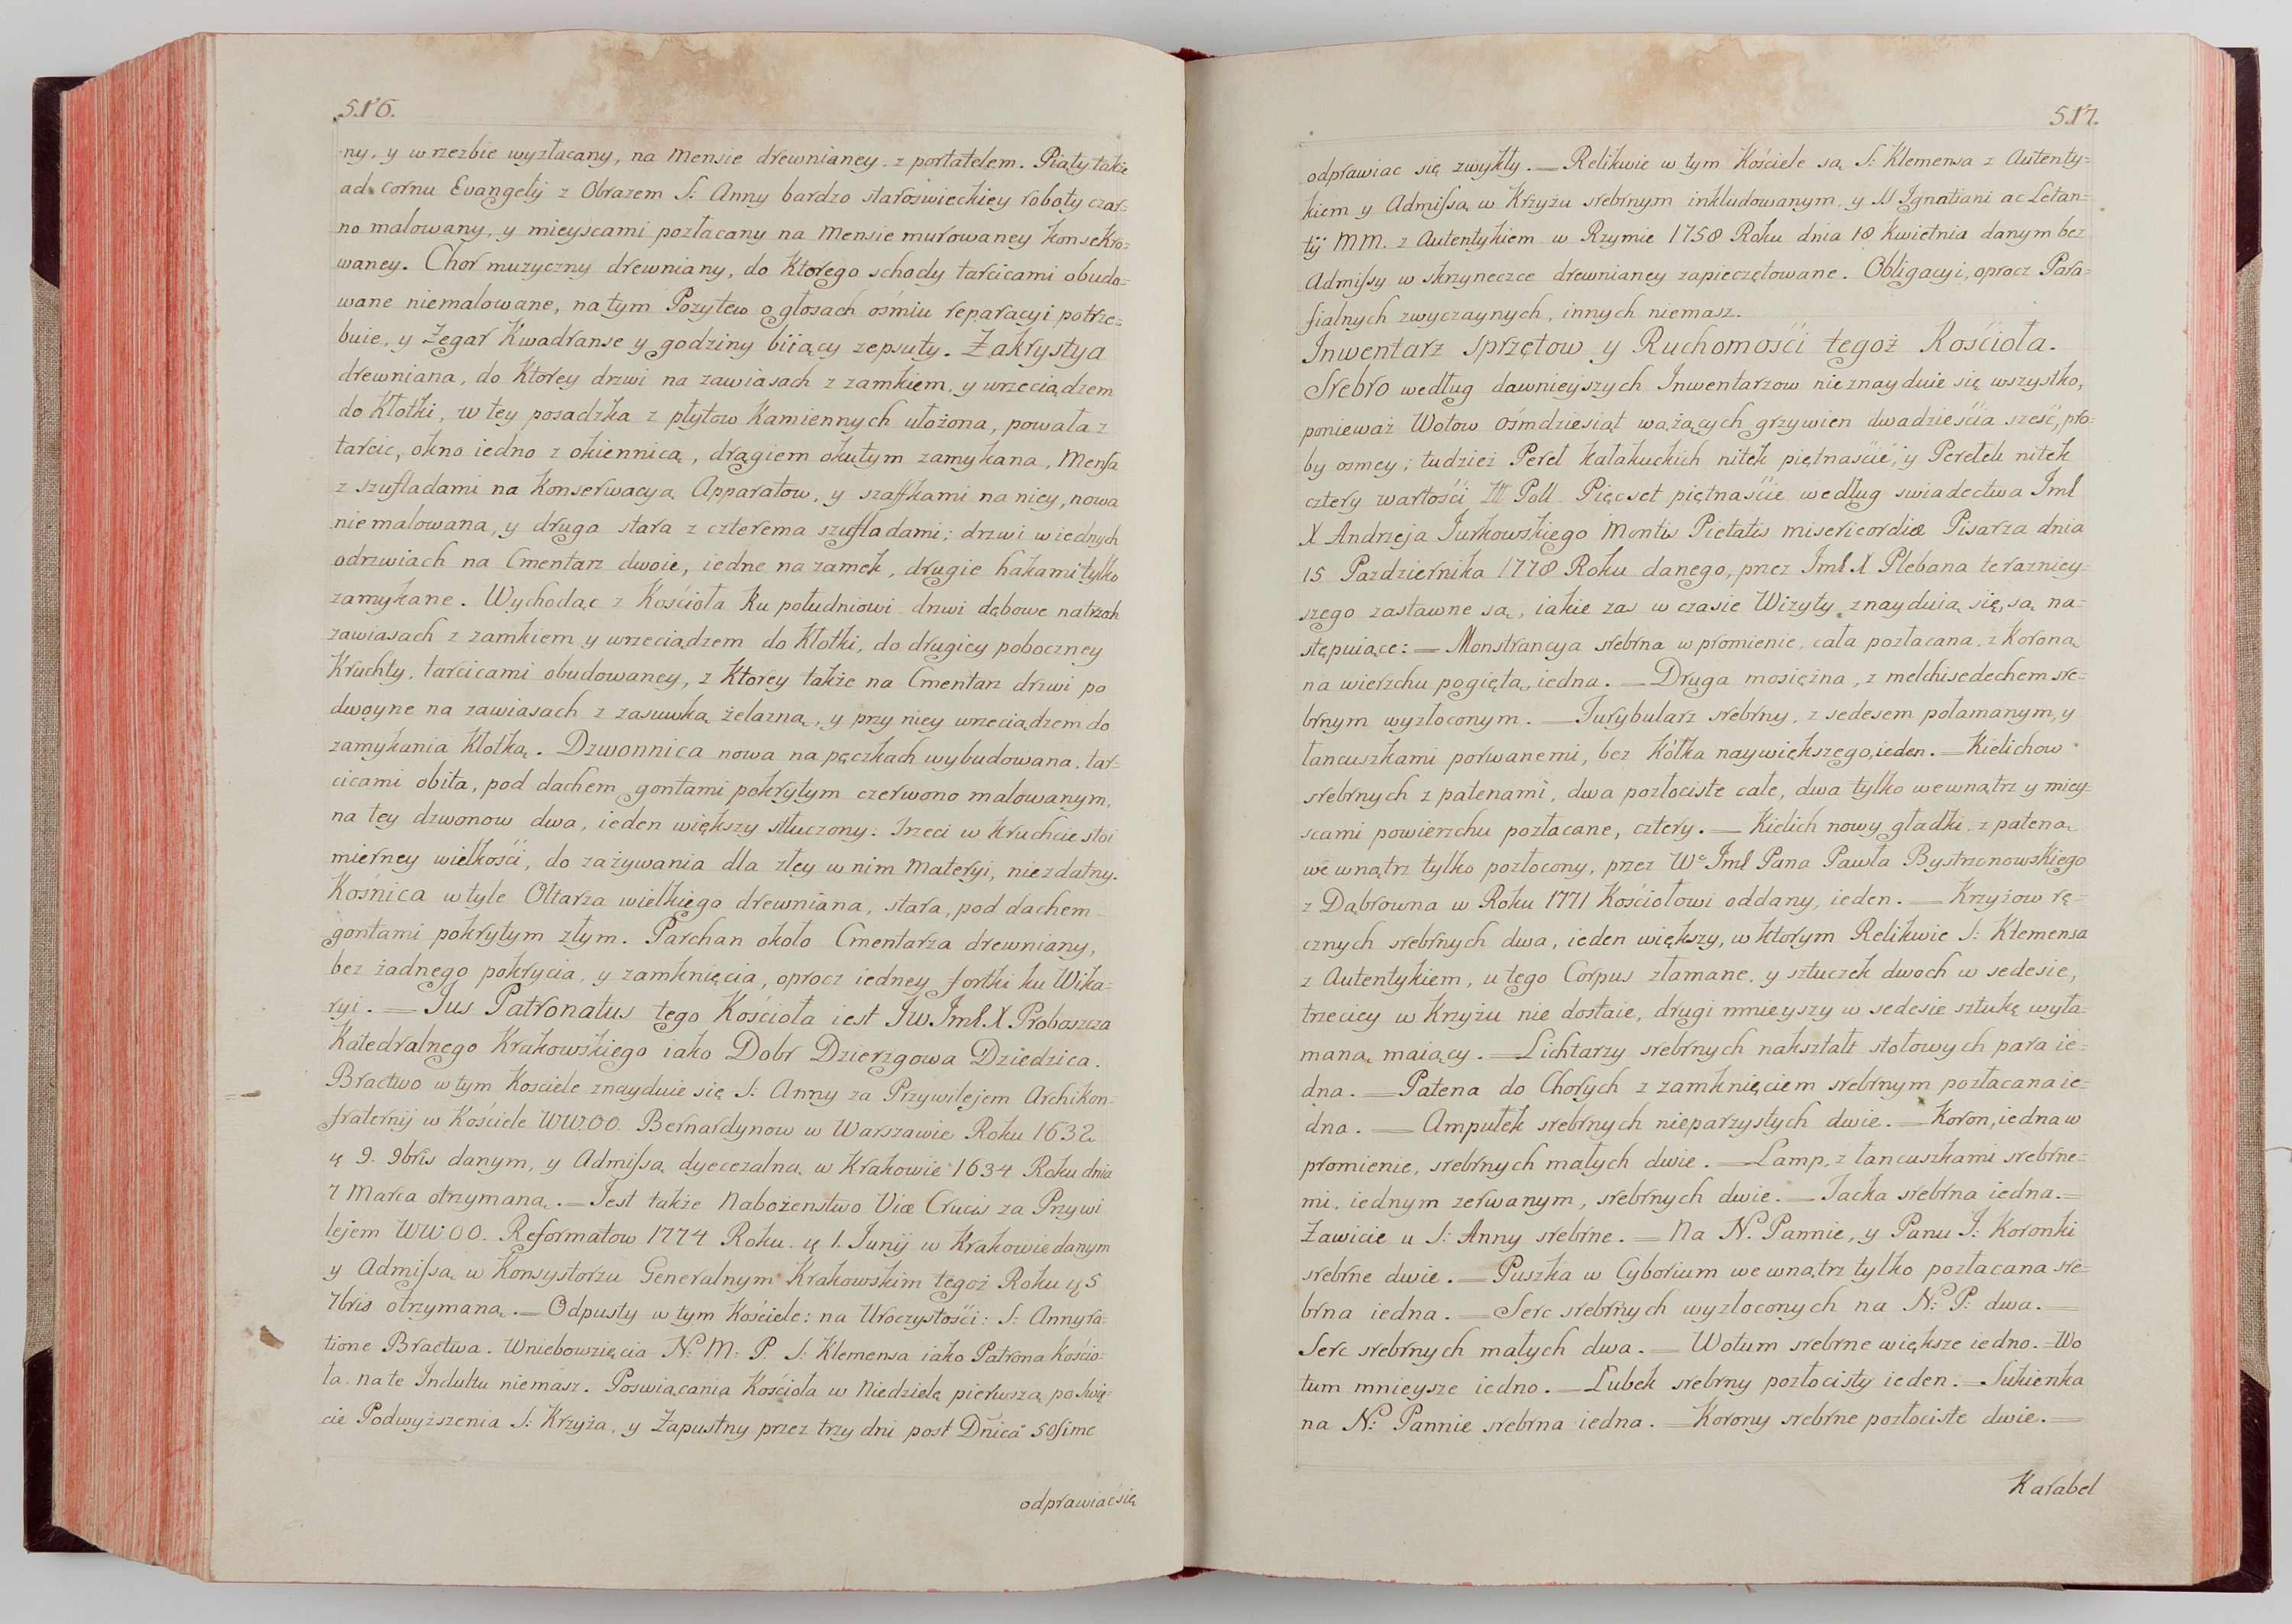 516.
ny, y w rzezbie wyzłacany, na Mensie drewnianey z portatelem. Piąty takze
ad cornu Evangelij z Obrazem S: Anny bardzo staroswieckiey roboty czar-
no malowany, y mieyscami pozłacany na Mensie murowaney konsekro-
waney. Chor muzyczny drewniany, do Ktorego schody tarcicami obudo-
wane niemalowane, na tym Pozytew o głosach ośmiu reparacyi potrze-
buie, y Zegar Kwadranse y godziny biiący zepsuty. Zakrystya
drewniana, do Ktorey drzwi na zawiasach z zamkiem, y wrzeciądzem
do Kłotki, w tey posadzka z płytow Kamiennych ułożona, powała z
tarcic, okno iedno z okiennicą, drągiem okutym zamykana, Mensa
z szufladami na Konserwacyą Apparatow, y szafkami na niey, nowa
niemalowana, y druga stara z czterema szufladami; drzwi w iednych
odrzwiach na Cmentarz dwoie, iedne na zamek, drugie hakami tylko
zamykane. Wychodąc z Kościoła ku południowi drzwi dębowe na trzech
zawiasach z zamkiem y wrzeciądzem do Kłotki, do drugiey poboczney
Kruchty, tarcicami obudowaney, z Ktorey także na Cmentarz drzwi po
dwoyne na zawiasach z zasuwką żelazną, y przy niey wrzeciądzem do
zamykania Kłotką. Dzwonnica nowa na pęczkach wybudowana, tar-
cicami obita, pod dachem gontami pokrytym czerwono malowanym,
na tey dzwonow dwa, ieden większy stłuczony: Trzeci w kruchcie stoi
mierney wielkości, do zażywania dla złey w nim Materyi, niezdatny.
Kośnica w tyle Ołtarza wielkiego drewniana, stara, pod dachem
gontami pokrytym złym. Parchan około Cmentarza drewniany,
bez żadnego pokrycia, y zamknięcia, oprocz iedney fortki ku Wika-
ryi. — Jus Patronatus tego Kościoła iest JW Jml X Proboszcza
Katedralnego Krakowskiego iako Dobr Dzierzgowa Dziedzica.
Bractwo w tym Kosciele znayduie się S: Anny za Przywilejem Archikon-
fraternij w Kościele WW.OO. Bernardynow w Warszawie Roku 1632
ą 9. 9bris danym, y Admissą dyecezalną w Krakowie 1634 Roku dnia
7 Marca otrzymaną. — Jest także Nabożenstwo Viæ Crucis za Przywi
lejem WW:OO. Reformatow 1774 Roku ą 1. Junij w Krakowie danym
y Admissą w Konsystorzu Generalnym Krakowskim tegoż Roku ą 5
7bris otrzymaną. — Odpusty w tym Kościele: na Uroczystości: S: Anny ra-
tione Bractwa. Wniebowzięcia N: M: P. S: Klemensa iako Patrona Kościo-
ła na te Indultu niemasz. Poswiącania Kościoła w Niedzielę pierwszą po Swię-
cie Podwyższenia S: Krzyża, y Zapustny przez trzy dni post Dnicā 50sime
odprawiać się
517.
odprawiac się zwykły. — Relikwie w tym Kościele są S: Klemensa z Autenty-
kiem y Admissą w Krzyżu srebrnym inkludowanym, y SS Ignatiani ac Letan-
tij MM. z Autentykiem w Rzymie 1758 Roku dnia 18 Kwietnia danym bez
Admissy w skrzyneczce drewnianey zapieczętowane. Obligacyi, oprocz Para-
fialnych zwyczaynych, innych niemasz.
Inwentarz Sprzętow y Ruchomości tegoż Kościoła.
Srebro według dawnieyszych Inwentarzow nieznayduie się wszystko,
ponieważ Wotow ośmdziesiąt ważących grzywien dwadzieścia sześć, pro-
by osmey; tudzież Pereł kałakuckich nitek piętnaście, y Perełek nitek
cztery wartości Poll Pięcset piętnaście według swiadectwa Jml
X Andrzeja Jurkowskiego Montis Pietatis misericordiæ Pisarza dnia
15 Pazdziernika 1778 Roku danego, przez Jml X Plebana terazniey-
szego zastawne są, iakie zas w czasie Wizyty znayduią się, są na-
stępuiące: — Monstrancya srebrna w promienie, cała pozłacana, z Koroną
na wierzchu pogiętą, iedna. — Druga mosiężna, z melchisedechem sre-
brnym wyzłoconym. — Turybularz srebrny, z sedesem połamanym, y
łancuszkami porwanemi, bez Kółka naywiększego, ieden. — Kielichow
srebrnych z patenami, dwa pozłociste całe, dwa tylko wewnątrz y miey-
scami powierzchu pozłacane, cztery. — Kielich nowy gładki, z pateną
wewnątrz tylko pozłocony, przez We Jml Pana Pawła Bystrzonowskiego
z Dąbrowna w Roku 1771 Kościołowi oddany, ieden. — Krzyżow rę-
cznych srebrnych dwa, ieden większy, w ktorym Relikwie S: Klemensa
z Autentykiem, u tego Corpus złamane, y sztuczek dwoch w sedesie,
trzeciey w Krzyżu nie dostaie, drugi mnieyszy w sedesie sztukę wyła-
maną maiący. — Lichtarzy srebrnych nakształt stołowych para ie-
dna. — Patena do Chorych z zamknięciem srebrnym pozłacana ie-
dna. — Ampułek srebrnych nieparzystych dwie. — Koron, iedna w
promienie, srebrnych małych dwie. — Lamp, z łancuszkami srebrne-
mi, iednym zerwanym, srebrnych dwie. — Tacka srebrna iedna. —
Zawicie u S: Anny srebrne. — Na N: Pannie, y Panu J: Koronki
srebrne dwie. — Puszka w Cyborium wewnątrz tylko pozłacana sre-
brna iedna. — Serc srebrnych wyzłoconych na N: P: dwa. —
Serc srebrnych małych dwa. — Wotum srebrne większe iedno. — Wo
tum mnieysze iedno. — Łubek srebrny pozłocisty ieden. — Sukienka
na N: Pannie srebrna iedna. — Korony srebrne pozłociste dwie. —
Karabel